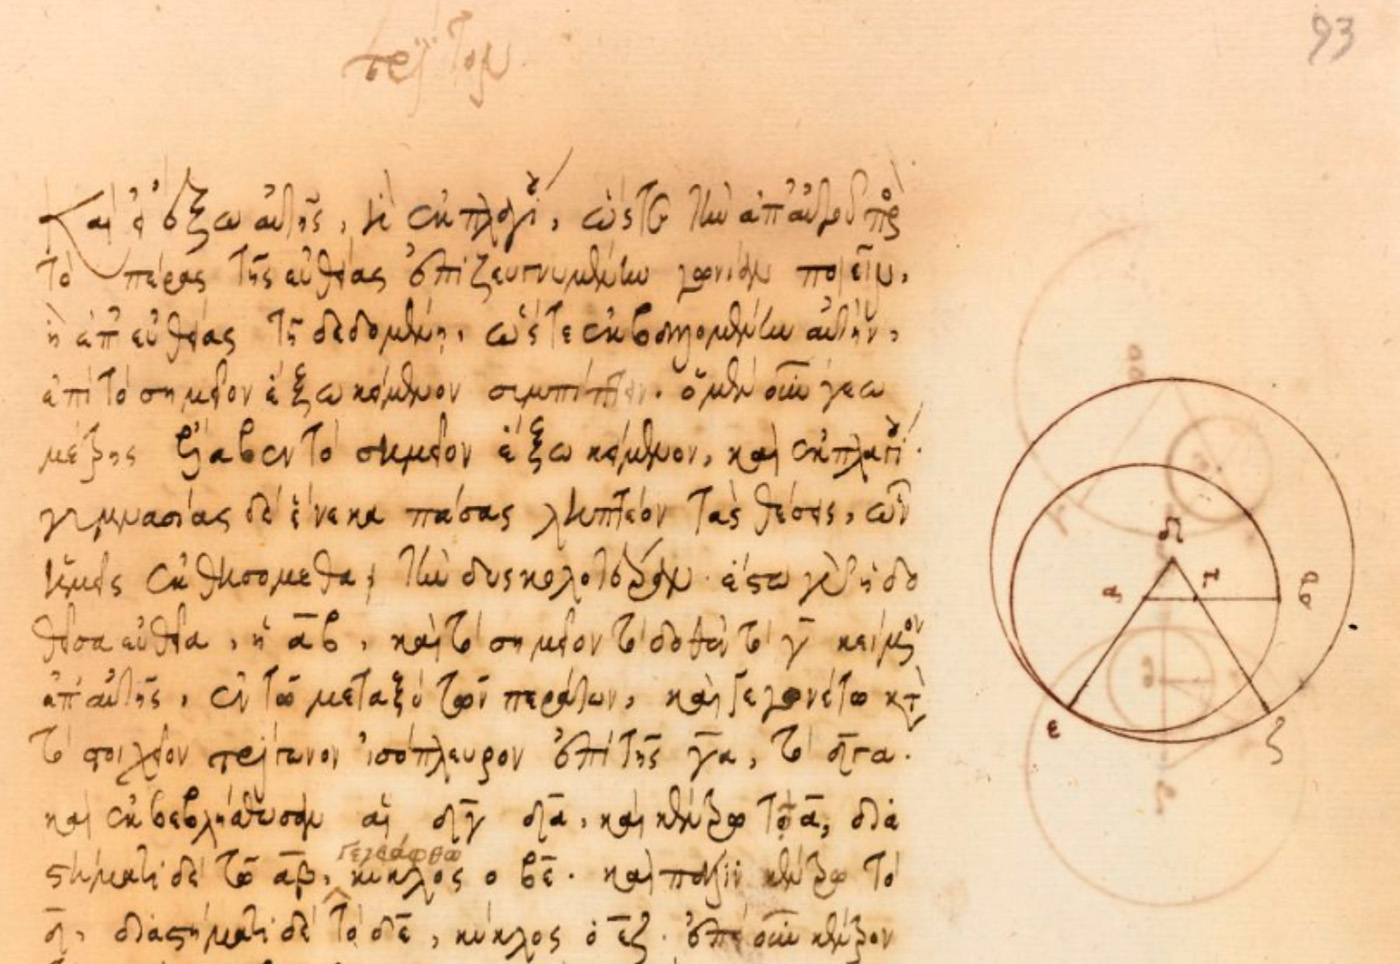 93
Καὶ ὁ ἔξω αὐτῆς, ἢ ἐκ πλαγί, ὥστε τὴν ἀπ' αὐτοῦ πρὸς
τὸ πέρας τῆς εὐθείας ἐπιζευγνυμένην γωνίαν ποιεῖν,
ἢ ἐπ' εὐθείας τῇ δεδομένῃ, ὥστε ἐκβαλλομένην αὐτὴν,
ἐπὶ τὸ σημεῖον ἔξω κείμενον συμπίπτειν. ὁ μὲν οὖν γεω
μέτρης ἔλαβεν τὸ σημεῖον ἔξω κείμενον, καὶ ἐκ πλαγί.
γυμνασίας δὲ ἕνεκα πάσας ληπτέον τὰς θέσεις, ὧν
ἡμεῖς ἐκθησόμεθα, τὴν δυσκολοτέραν. ἔστω γὰρ ἡ δο
θεῖσα εὐθεῖα, ἡ α̅β̅, καὶ τὸ σημεῖον τὸ δοθὲν τὸ γ̅ κείμενον
ἐπ' αὐτῆς, ἐν τῷ μεταξὺ τῶν περάτων, καὶ γεγονέτω κατὰ
τὸ στοιχεῖον τρίγωνον ἰσόπλευρον ἐπὶ τῆς γ̅α̅, τὸ δ̅γ̅α̅.
καὶ ἐκβεβλήσθωσαν αἱ δ̅γ̅ δ̅α̅, καὶ κέντρῳ τῷ α̅, δια
γεγράφθω
στήματι δὲ τῷ α̅β̅, κύκλος ὁ β̅ε̅. καὶ πάλιν κέντρῳ τῷ
δ̅, διαστήματι δὲ τῷ δ̅ε̅, κύκλος ὁ ε̅ζ̅. ἐπεὶ οὖν κέντρον
δ
α γ β
ε ζ